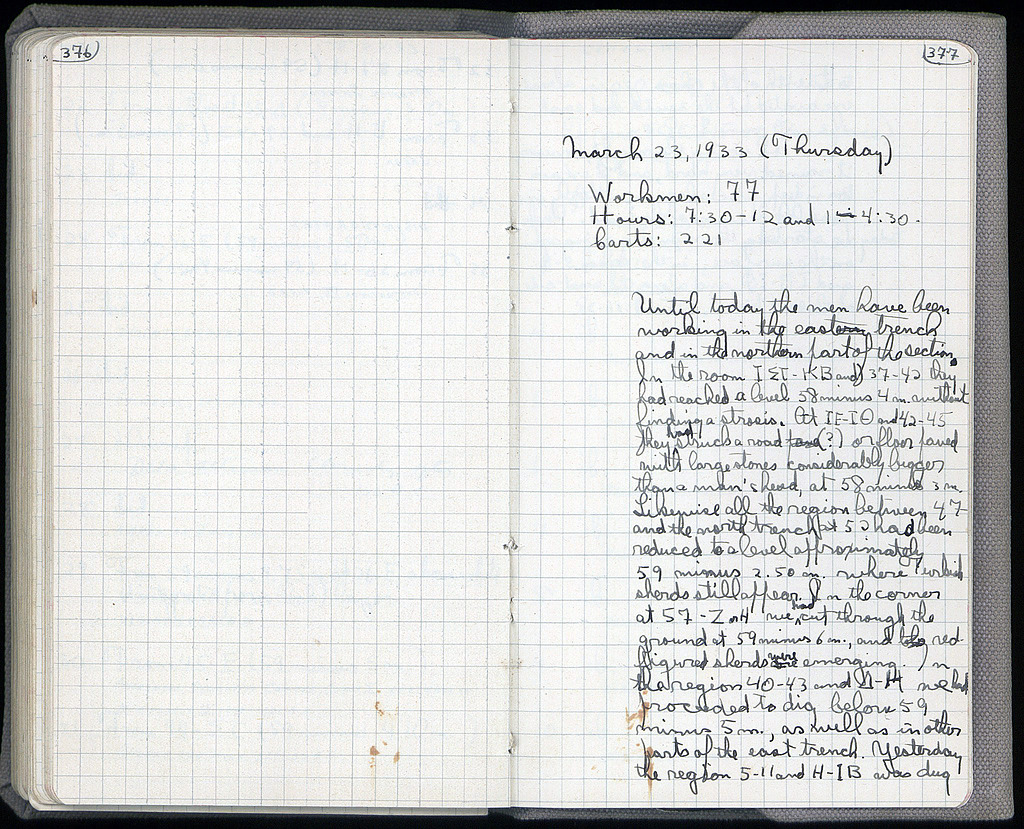 376
377
March 23, 1933 (Thursday)
Workmen: 77
Hours: 7:30-12 and 1-4:30.
Carts: 221
Until today the men have been
working in the east trench
and in the northern part of the section.
In the room ΙΣΤ-ΚΒ and 37-42 they
had reached a level 58 minus 4 m. without
finding a strosis. At ΙΕ-ΙΘ and 42-45
they had struck a road (?) or floor paved
with large stones considerably bigger
than a man's head, at 58 minus 3 m.
Likewise all the region between 47-
and the north trench at 52 had been
reduced to a level approximately
59 minus 2.50 m. where Turkish
sherds still appear. In the corner
at 57-Ζ we had cut through the
ground at 59 minus 6 m., and red
figured sherds were emerging. In
the region 40-43 and we had
proceeded to dig below 59
minus 5 m., as well as in other
parts of the east trench. Yesterday
the region 5-11 and Η-ΙΒ was dug